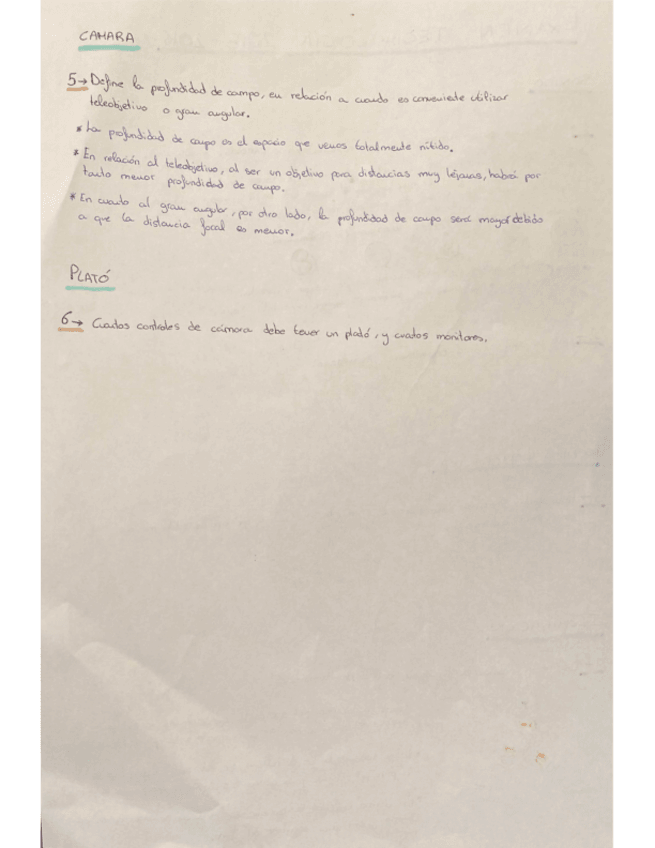 CAMARA
5→ Define la profundidad de campo, en relación a cuando es conveniente utilizar
teleobjetivo o gran angular.
* La profundidad de campo es el espacio que vemos totalmente nítido.
* En relación al teleobjetivo, al ser un objetivo para distancias muy lejanas, habrá por
tanto menor profundidad de campo.
* En cuanto al gran angular, por otro lado, la profundidad de campo será mayor debido
a que la distancia focal es menor.
PLATÓ
6→ Cuantos controles de cámara debe tener un plató, y cuantos monitores.